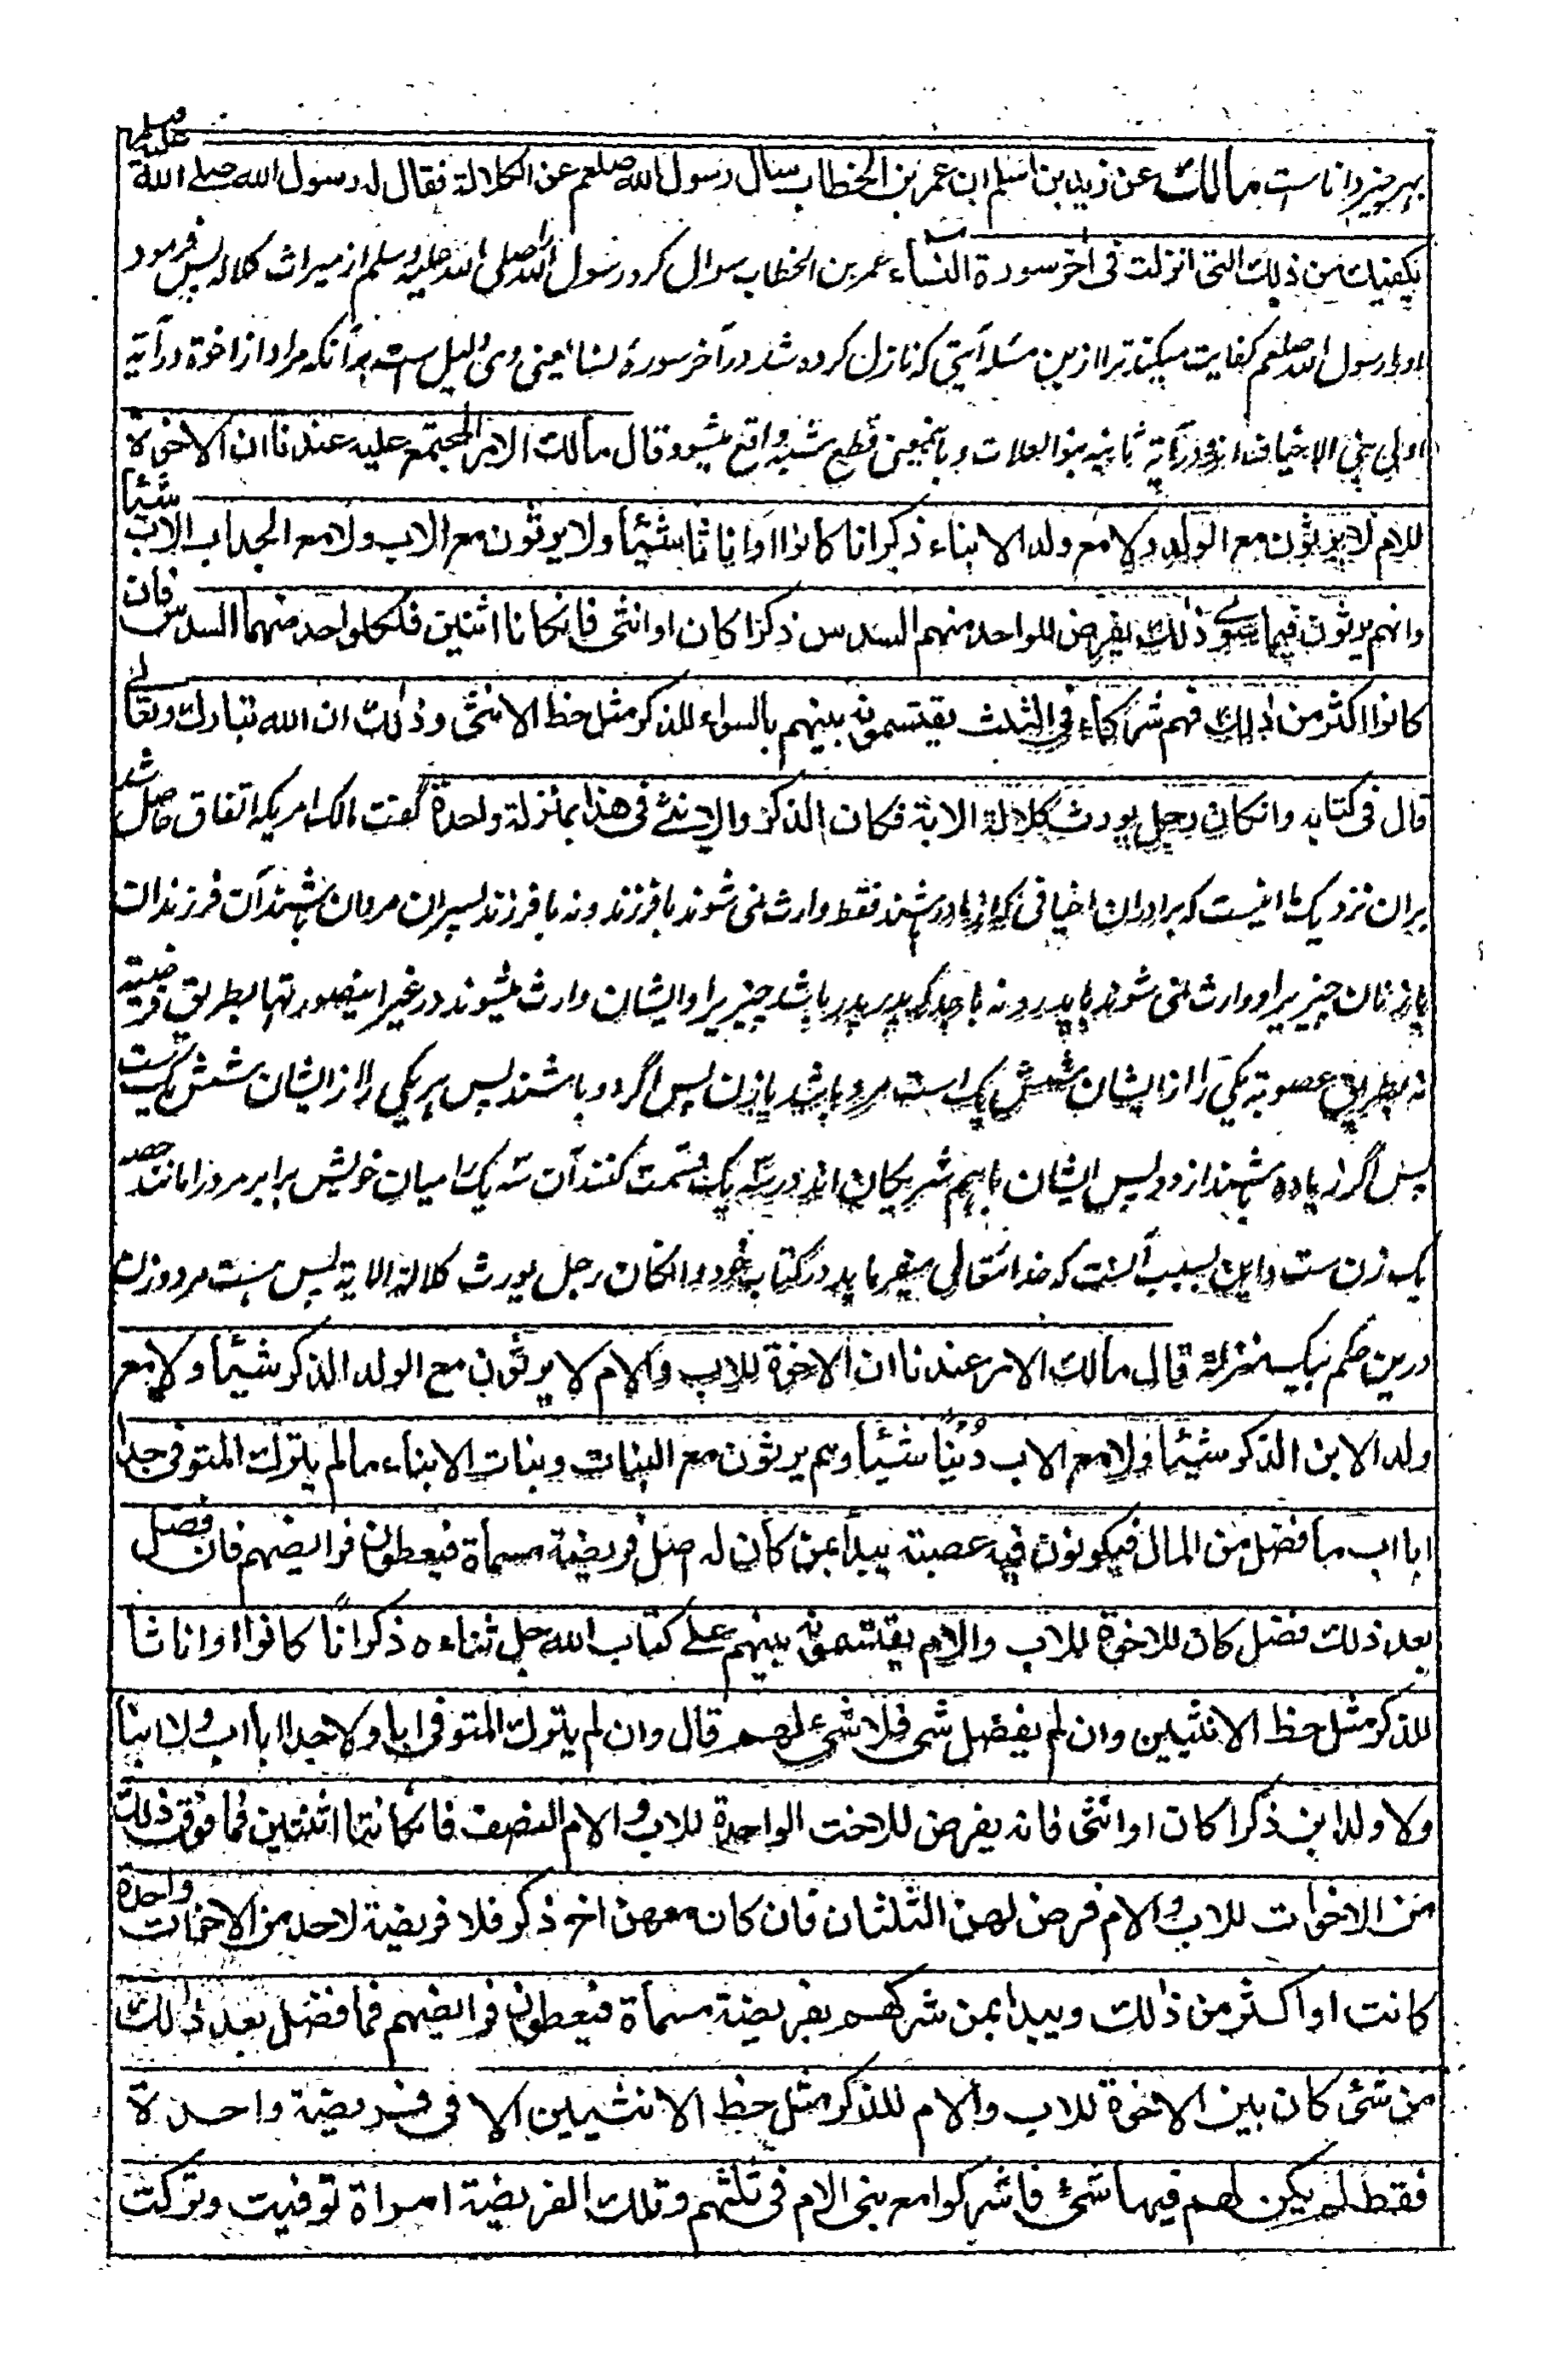 بهر چیز دانا ست مالك عن زيد بن اسلم ان عمر بن الخطاب سال رسول الله صلعم عن الكلالة فقال له رسول الله صلے الله عليه وسلم
يكفيك من ذلك التى انزلت فى اخر سورة النساء عمر بن الخطاب سوال کرد رسول الله صلی الله علیه وسلم از میراث کلاله پس فرمود
او را رسول الله صلعم کفایت میکند ترا ازین مسئله آیتی که نازل کرده شد در آخر سورهٔ نسا یعنی وی دلیل ست بر آنکه مراد از اخوة در آیة
اولی بنی الاخیاف اند و در آیة ثانیه بنو العلات و باینمعنی قطع شبه واقع میشود قال مالك الامر المجتمع عليه عندنا ان الاخوة
للام لا يرثون مع الولد ولا مع ولد الابناء ذكرانا كانوا او اناثا شيئا ولا يرثون مع الاب ولا مع الجد اب الاب شيئا
وانهم يرثون فيما سوے ذلك يفرض للواحد منهم السدس ذكرا كان او انثى فان كانا اثنين فلكل واحد منهما السدس فان
كانوا اكثر من ذلك فهم شركاء فى الثلث يقتسمونه بينهم بالسواء للذكر مثل حظ الانثى وذلك ان الله تبارك وتعالے
قال فى كتابه وان كان رجل يورث كلالة الاية فكان الذكر والانثے فى هذا بمنزلة واحدة گفت مالک امریکه اتفاق حاصل شد
بر ان نزدیک ما اینست که برادران اخیافی که از مادر باشند فقط وارث نمی شوند با فرزند و نه با فرزند پسران مردمان باشند آن فرزندان
یا زنان چیزیرا و وارث نمی شوند با پدر و نه با جد که پدر پدر باشد چیزیرا و ایشان وارث میشوند در غیر اینصورتها بطریق فرضیته
نه بطریق عصوبة یکی را از ایشان شش یک است مرد باشد یا زن پس اگر دو باشند پس هر یکی را از ایشان شش یک ست
پس اگر زیاده باشند از دو پس ایشان باهم شریکان اند در سه یک قسمت کنند آن سه یک را میان خویش برابر مرد را مانند حصه
یک زن ست و این بسبب آنست که خدا تعالی میفرماید در کتاب خود و ان کان رجل یورث کلالة الایة پس هست مرد و زن
درین حکم بیک منزلة قال مالك الامر عندنا ان الاخوة للاب والام لا يرثون مع الولد الذكر شيئا ولا مع
ولد الابن الذكر شيئا ولا مع الاب دنيا شيئا وهم يرثون مع البنات وبنات الابناء مالم يترك المتوفى جدا
ابا اب ما فضل من المال فيكونون فيه عصبة يبدأ بمن كان له اصل فريضة مسماة فيعطون فرايضهم فان فضل
بعد ذلك فضل كان للاخوة للاب والام يقتسمونه بينهم على كتاب الله جل ثناءه ذكرانا كانوا او اناثا
للذكر مثل حظ الانثيين وان لم يفضل شى فلا شى لهم قال وان لم يترك المتوفى ابا ولا جدا ابا اب ولا ابنا
ولا ولد ابن ذكرا كان او انثى فانه يفرض للاخت الواحدة للاب والام النصف فان كانتا اثنتين فما فوق ذلك
من الاخوات للاب والام فرض لهن الثلثان فان كان معهن اخ ذكر فلا فريضة لاحد من الاخوات واحدة
كانت او اكثر من ذلك ويبدا بمن شركهم بفريضة مسماة فيعطون فرايضهم فما فضل بعد ذلك
من شئ كان بين الاخوة للاب والام للذكر مثل حظ الانثيين الا فى فريضة واحدة
فقط لم يكن لهم فيها شئ فاشركوا مع بنى الام فى ثلثهم وتلك الفريضة امراة توفيت وتركت